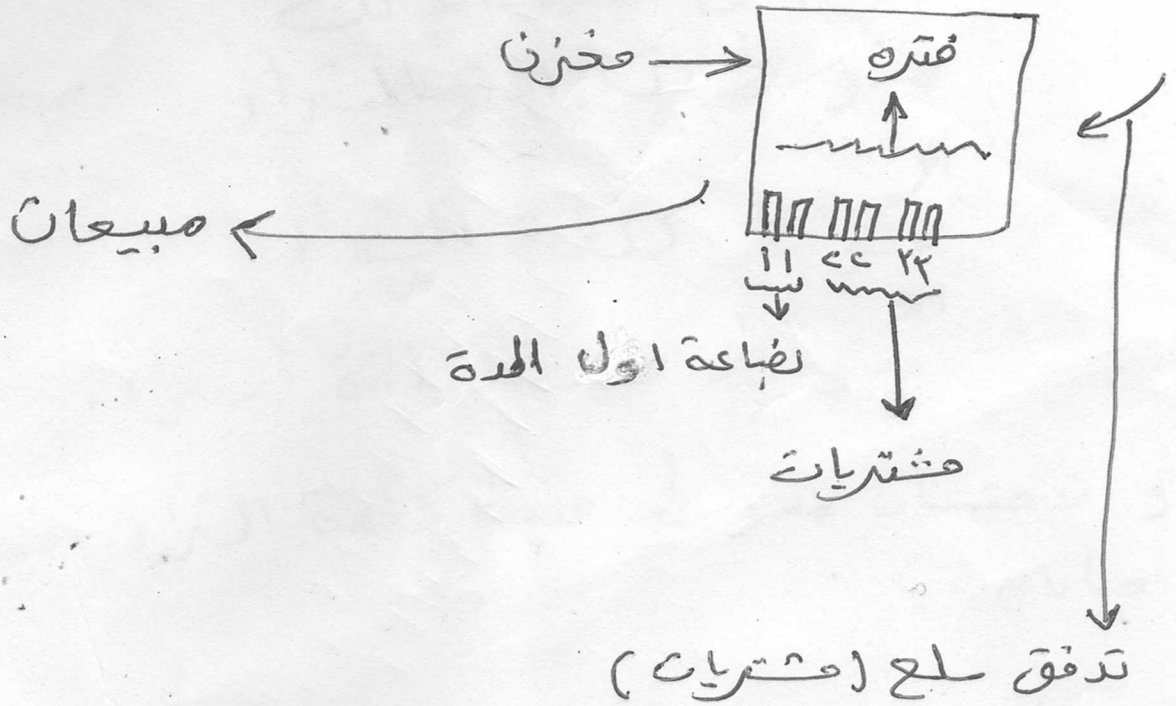 فتره
مخزن
مبيعات
١١ ٢٢ ٣٣
بضاعة اول المدة
مشتريات
تدفق سلع (مشتريات)